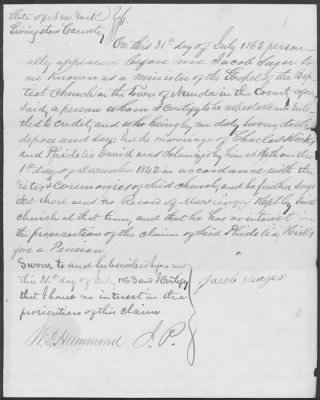 State of New York } ss.
Livingston County
On this 31st day of July 1863 person-
ally appeared before me Jacob
me known as a minister of the Gospel of the Bap
tist Church in the Town of Nunda in the County afore
said, a person whom I certify to be respectable and enti-
tled to credit, and who being by me duly sworn doth
depose and say; that the marriage of Charles Hicks
and Phidelia David was Solemnized by him at on the
1st day of 1842 in accordance with the
rites & Ceremonies of said church, and he further says
that there was no Record of Marriages Kept by said
church at that time, and that he has no interest in
the prosecution of the claim of said Phidelia Hicks
for a Pension
Sworn to and Subscribed before me
this 31st day of July 1863 and I Certify
that I have no interest in the
prosecution of this claim
Jacob
W. S. Hammond J. P.